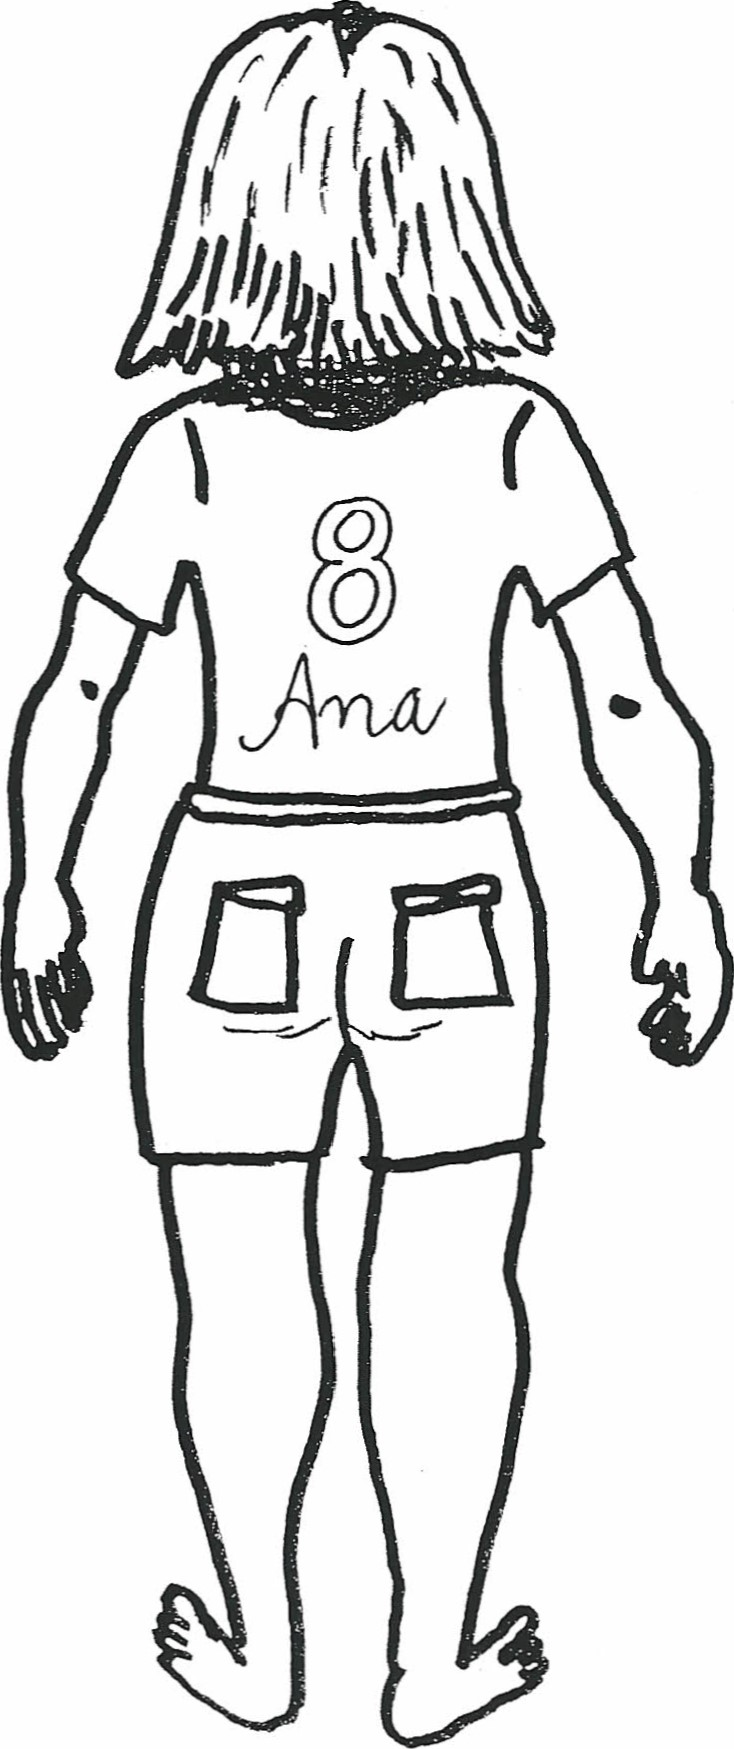 8
Ana